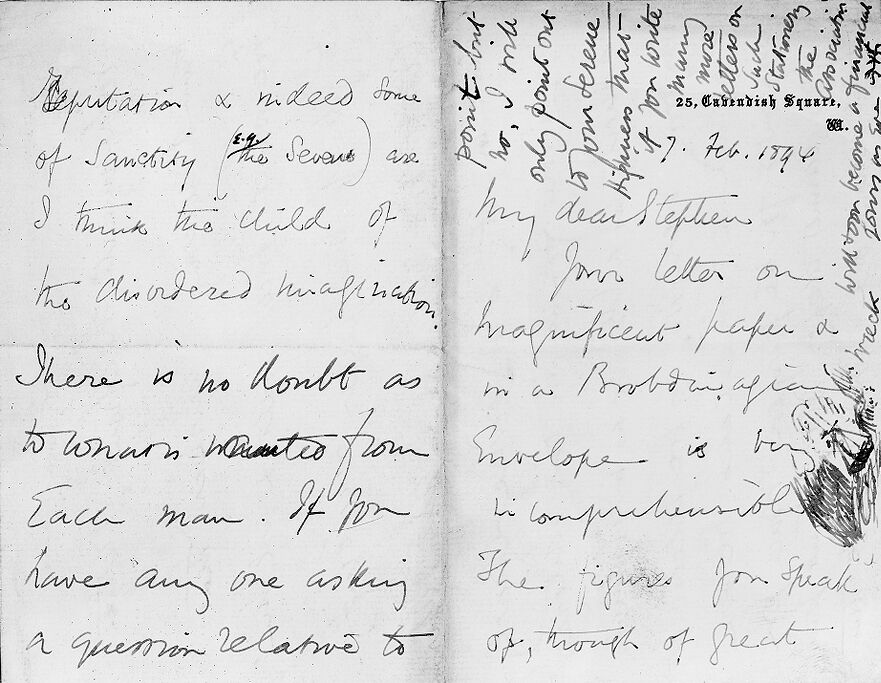 25, Cavendish Square,
W.
7. Feb. 1894
My dear Stephen
Your letter on
magnificent paper &
in a Brobdingnagian
Envelope is very
incomprehensible
The figures you speak
of, though of great
Reputation & indeed some
of Sanctity (e.g. the Seven) are
I think the child of
the disordered imagination.
There is no doubt as
to what is wanted from
Each man. If you
have any one asking
a question relative to
point but
no, I will
only point out
to your Serene
Highness that
if you write
many
more
letters on
such
Stationery
the
Association
will soon become a financial
wreck
yours as ever